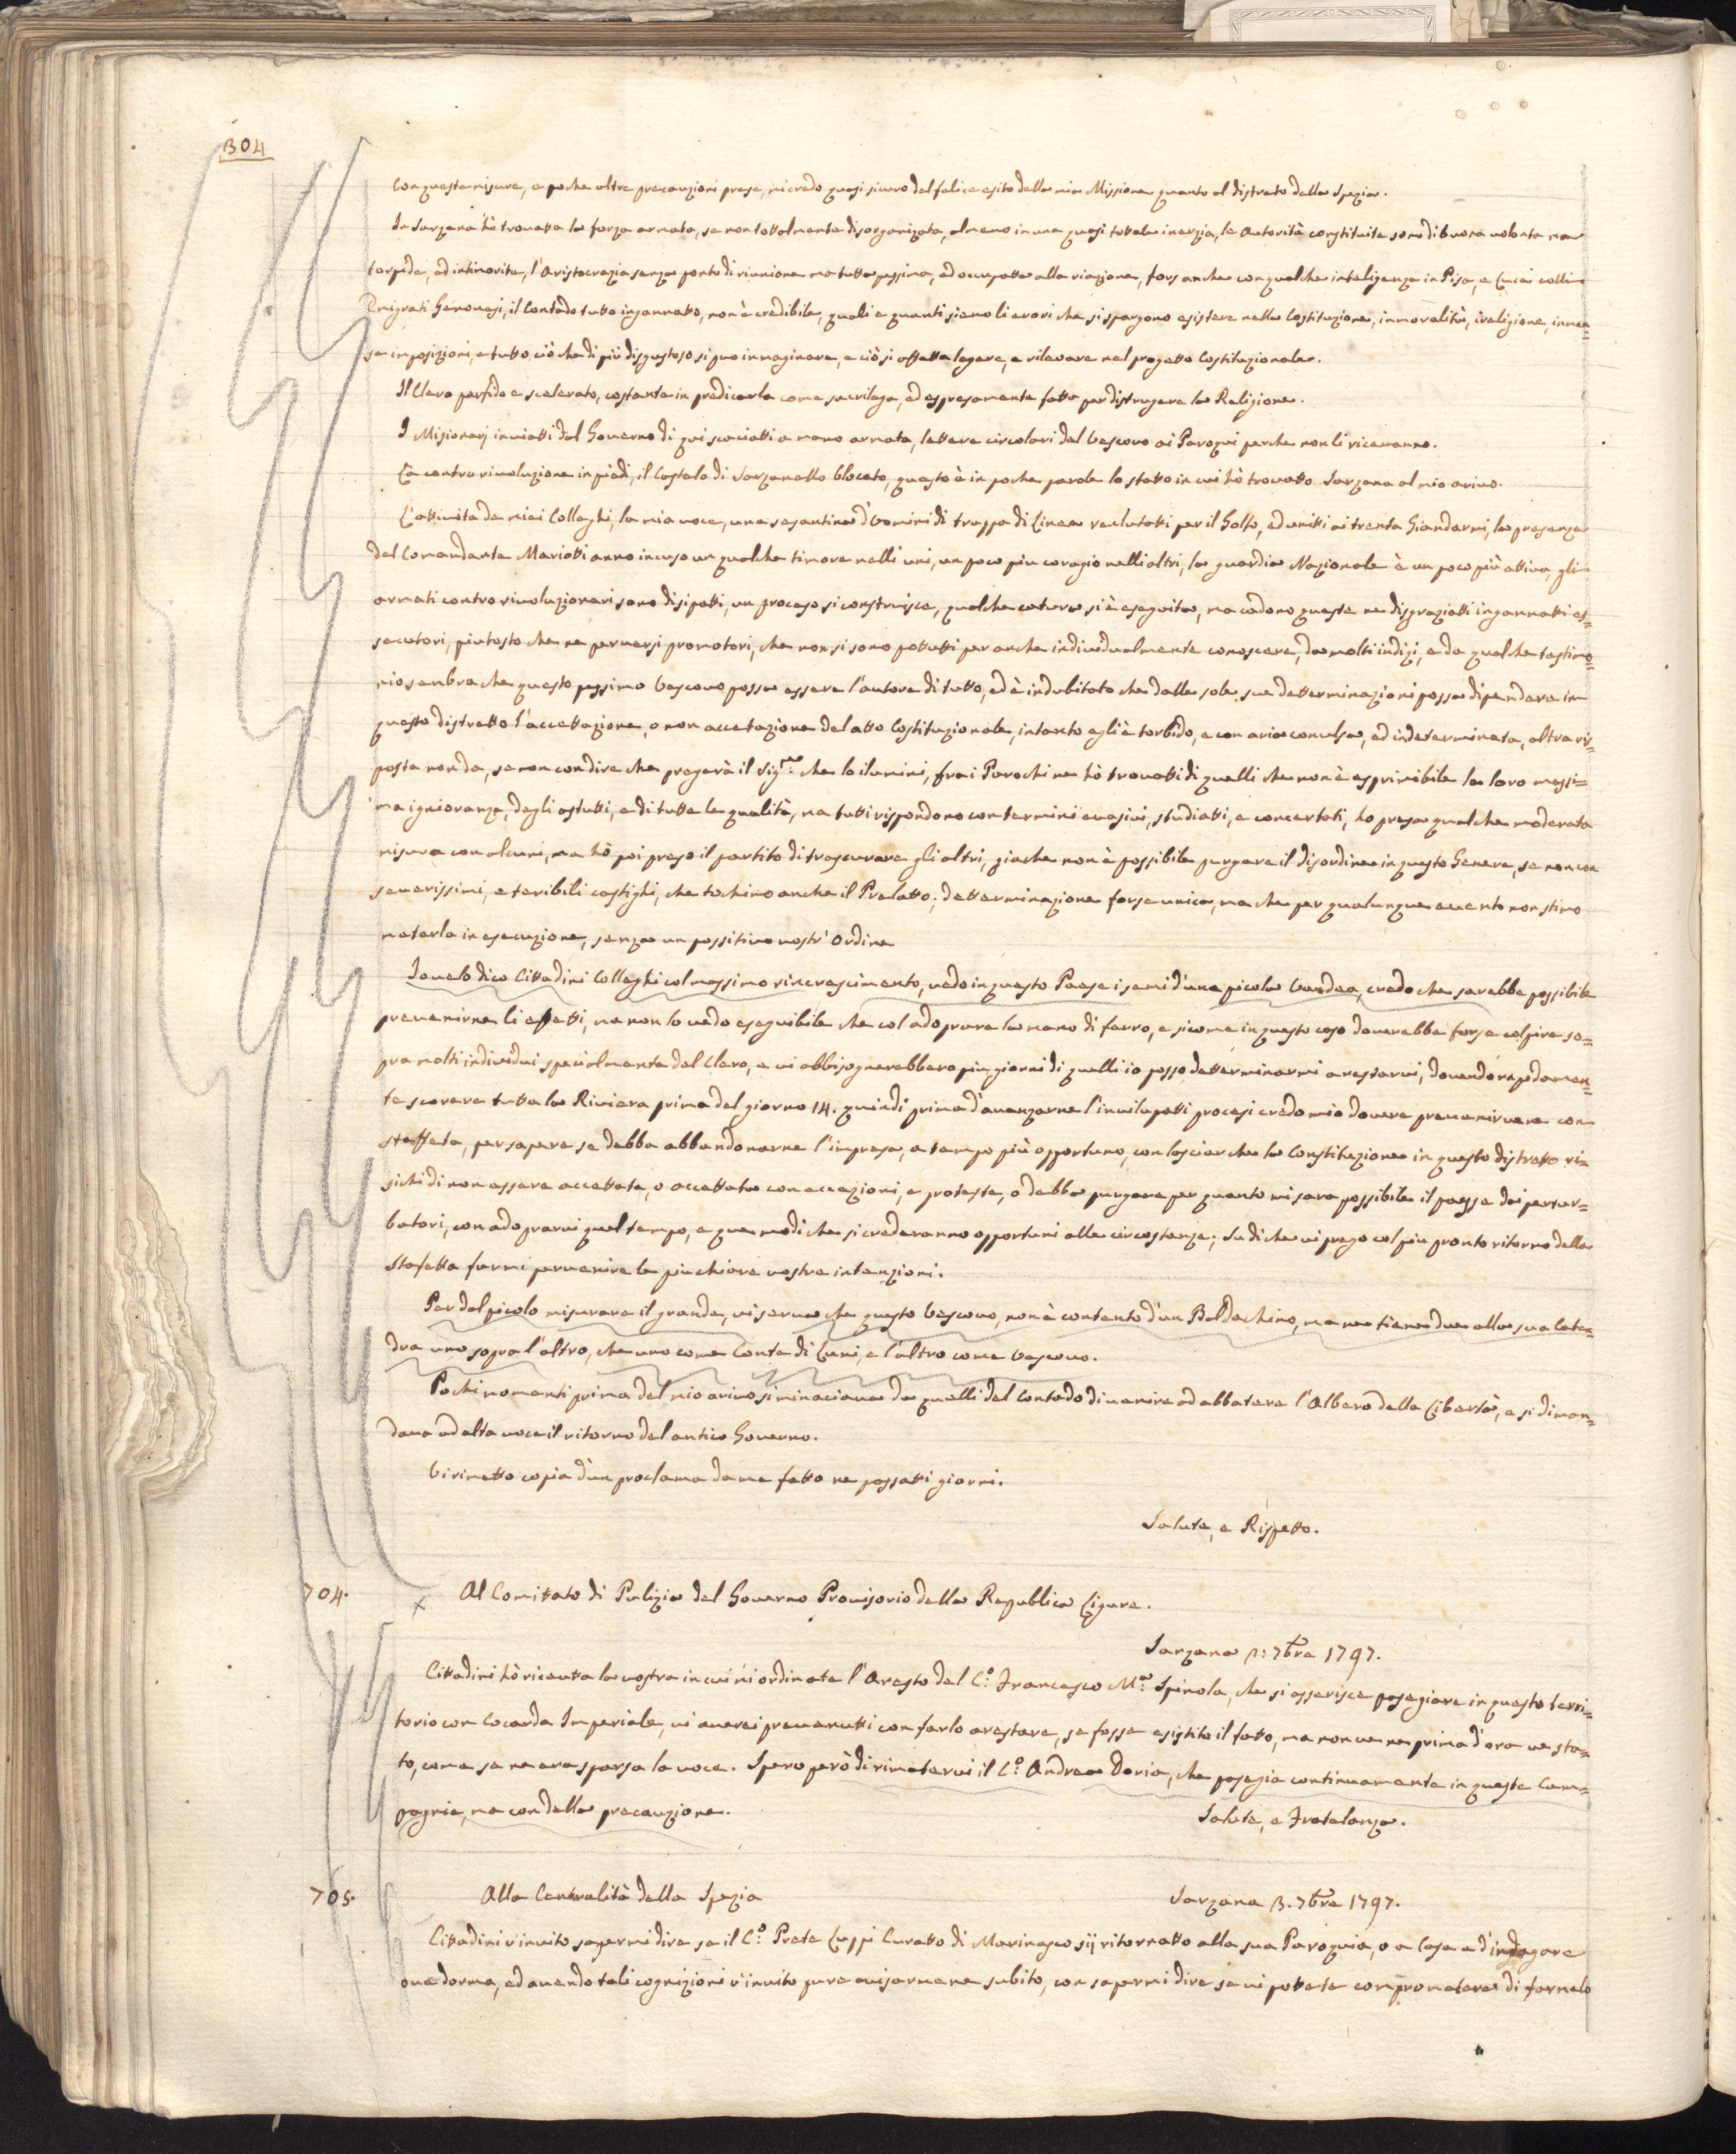 304
Con queste misure, e poche altre precauzioni prese, mi credo quasi sicuro del felice esito della mia Missione quanto al distreto della Spezia.
In Sarzana hò trovatta la forza armata, se non tottalmente disorganizata, almeno in una quasi tottale inerzia, le Autorità constituite sono di buona volonta ma
torpide, ed intimorite, l'Aristocrazia senza ponto di riunione ma tutta pessima, ed occupatta alla riazione, fors anche con qualche inteligenza in Pisa, e Luca colli
Emigrati Genovesi, il Contado tutto ingannatto, non è credibile, quali e quanti sieno li erori che si spargono esistere nella Costituzione, immoralità, ireligione, immen=
se imposizioni, e tutto ciò che di più disgustoso si puo immaginare, e ciò si affetta legere, e rilevare nel progetto Costituzionale.
Il Clero perfido e scelerato, costante in predicarla come sacrilega, ed espresamente fatta per distrugere la Religione.
I Misionarj inviatti dal Governo di qui scaciatti a mano armata, lettere circolari del Vescovo ai Paroqui perche non li ricevanno.
La contro rivoluzione in piedi, il Castelo di Sarzanello blocato, questo è in poche parole lo statto in cui hò trovatto Sarzana al mio arivo.
L'attività de miei Colleghi, la mia voce, una sesantina d'Uomini di truppa di Linea reclutatti per il Golfo, ed unitti ai trenta Giandarmi, la presenza
del Comandante Mariotti anno incuso un qualche timore nelli uni, un poco piu coragio nelli altri, la guardia Nazionale è un poco più attiva, gli
armati contro rivoluzionari sono disipatti, un proceso si construisce, qualche catura si è eseguita, ma cadono queste ne disgraziatti ingannatti es=
secutori, piutosto che ne perversi promotori, che non si sono pottutti per anche individualmente conoscere, da molti indizi, e da qualche testimo=
nio sembra che questo pessimo Vescovo possa essere l'autore di tutto, ed è indubitato che dalle sole sue detterminazioni possa dipendere in
questo distretto l'accettazione, o non accetazione del atto Costituzionale, intanto egli è torbido, e con aria convulsa, ed indeterminata, altra ris=
posta non da, se non con dire che pregerà il Sig.re che lo ilumini, frai Parochi ne hò trovatti di quelli che non è esprimibile la loro massi=
ma ignioranza, degli astutti, e di tutte le qualità, ma tutti rispondono con termini evasivi, studiatti, e concertati, ho presa qualche moderata
misura con alcuni, ma hò poi preso il partito di trascurare gli altri, giache non è possibile purgare il disordine in questo Genere, se non con
severissimi, e teribili castighi, che tochino anche il Prelatto; detterminazione forse unica, ma che per qualunque evento non stimo
meterla in esecuzione, senza un possitivo vostr'Ordine
Io velo dico Cittadini Colleghi col massimo rincrescimento, vedo in questo Paese i semi d'una picola Vandea, credo che sarebbe possibile
prevenirne li effetti, ma non lo vedo eseguibile che col adoprare la mano di ferro, e sicome in questo caso doverebbe forse colpire so=
pra molti individui specialmente del Clero, e vi abbisognerebbero piu giorni di quelli io posso detterminarmi a restarvi, dovendo rapidamen=
te scorere tutta la Riviera prima del giorno 14. quindi prima d'avanzarne l'invilupatti procesi credo mio dovere prevenirvene con
staffeta, per sapere se debba abbandonarne l'impresa, a tempo più opportuno, con lasciar che la Constituzione in questo distretto ri=
sichi di non essere accettata, o accettata con eccezioni, e proteste, o debba purgare per quanto mi sara possibile il paese dai pertur=
batori, con adoprarvi quel tempo, e que modi che si crederanno opportuni alle circostanze; Su di che vi prego col piu pronto ritorno della
Stafetta farmi pervenire le piu chiare vostre intenzioni.
Per dal picolo misurare il grande, vi serva che questo Vescovo, non è contento d'un Baldachino, ma ne tiene due alla sua Cate=
dra uno sopra l'altro, che uno come Conte di Luni, e l'altro come Vescovo.
Pochi momenti prima del mio arivo si minaciava da quelli del Contado di venire ad abbatere l'Albero della Libertà, e si diman=
dava ad alta voce il ritorno del antico Governo.
Vi rimetto copia d'un proclama da me fatto ne passatti giorni.
Salute, e Rispetto.
704. x Al Comitato di Pulizia del Governo Provisorio della Republica Ligure.
Sarzana 3: 7bre 1797.
Cittadini hò ricevuta la vostra in cui mi ordinate l'Aresto del C.o Francesco M.a Spinola, che si asserisce paseggiare in questo terri=
torio con Cocarda Imperiale, vi averei prevenutti con farlo arestare, se fosse esistito il fatto, ma non ve ne prima d'ora ve sta=
to, come se ne era sparsa la voce. Spero però di rimetervi il C.o Andrea Doria, che pasegia continuamente in queste Cam=
pagnie, ma con della precauzione.
Salute, e Fratelanza.
705. Alla Centralità della Spezia
Sarzana 3. 7bre 1797.
Cittadini v'invito sapermi dire se il C.o Prete Luppi Curatto di Marinasco sij ritornatto alla sua Paroquia, o a Casa e d'indagare
ove dorma, ed avendo tali cognizioni v'invito pure avisarmene subito, con sapermi dire se vi pottete comprometere di farmelo